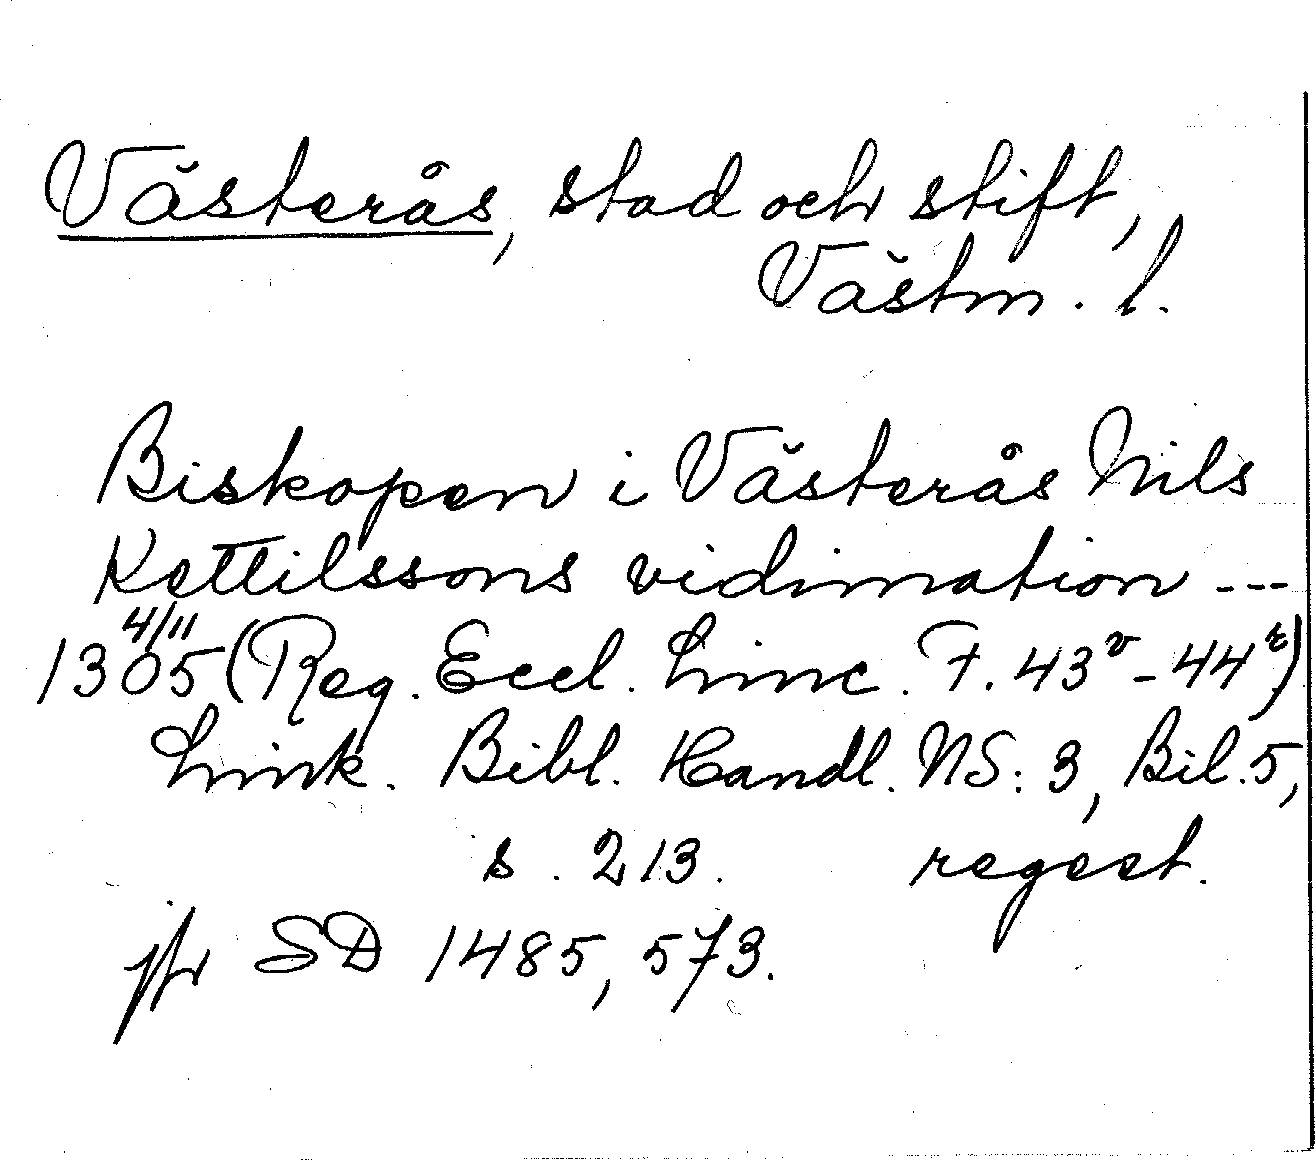 Västerås, stad och stift,
Västm. l.
Biskopen i Västerås Nils
Kettilssons vidimation ---
4/11
1305 (Reg. Eccl. Linc. F. 43v - 44r)
Link. Bibl. Handl. NS: 3, Bil. 5,
s. 213. regest.
jfr SD 1485, 573.